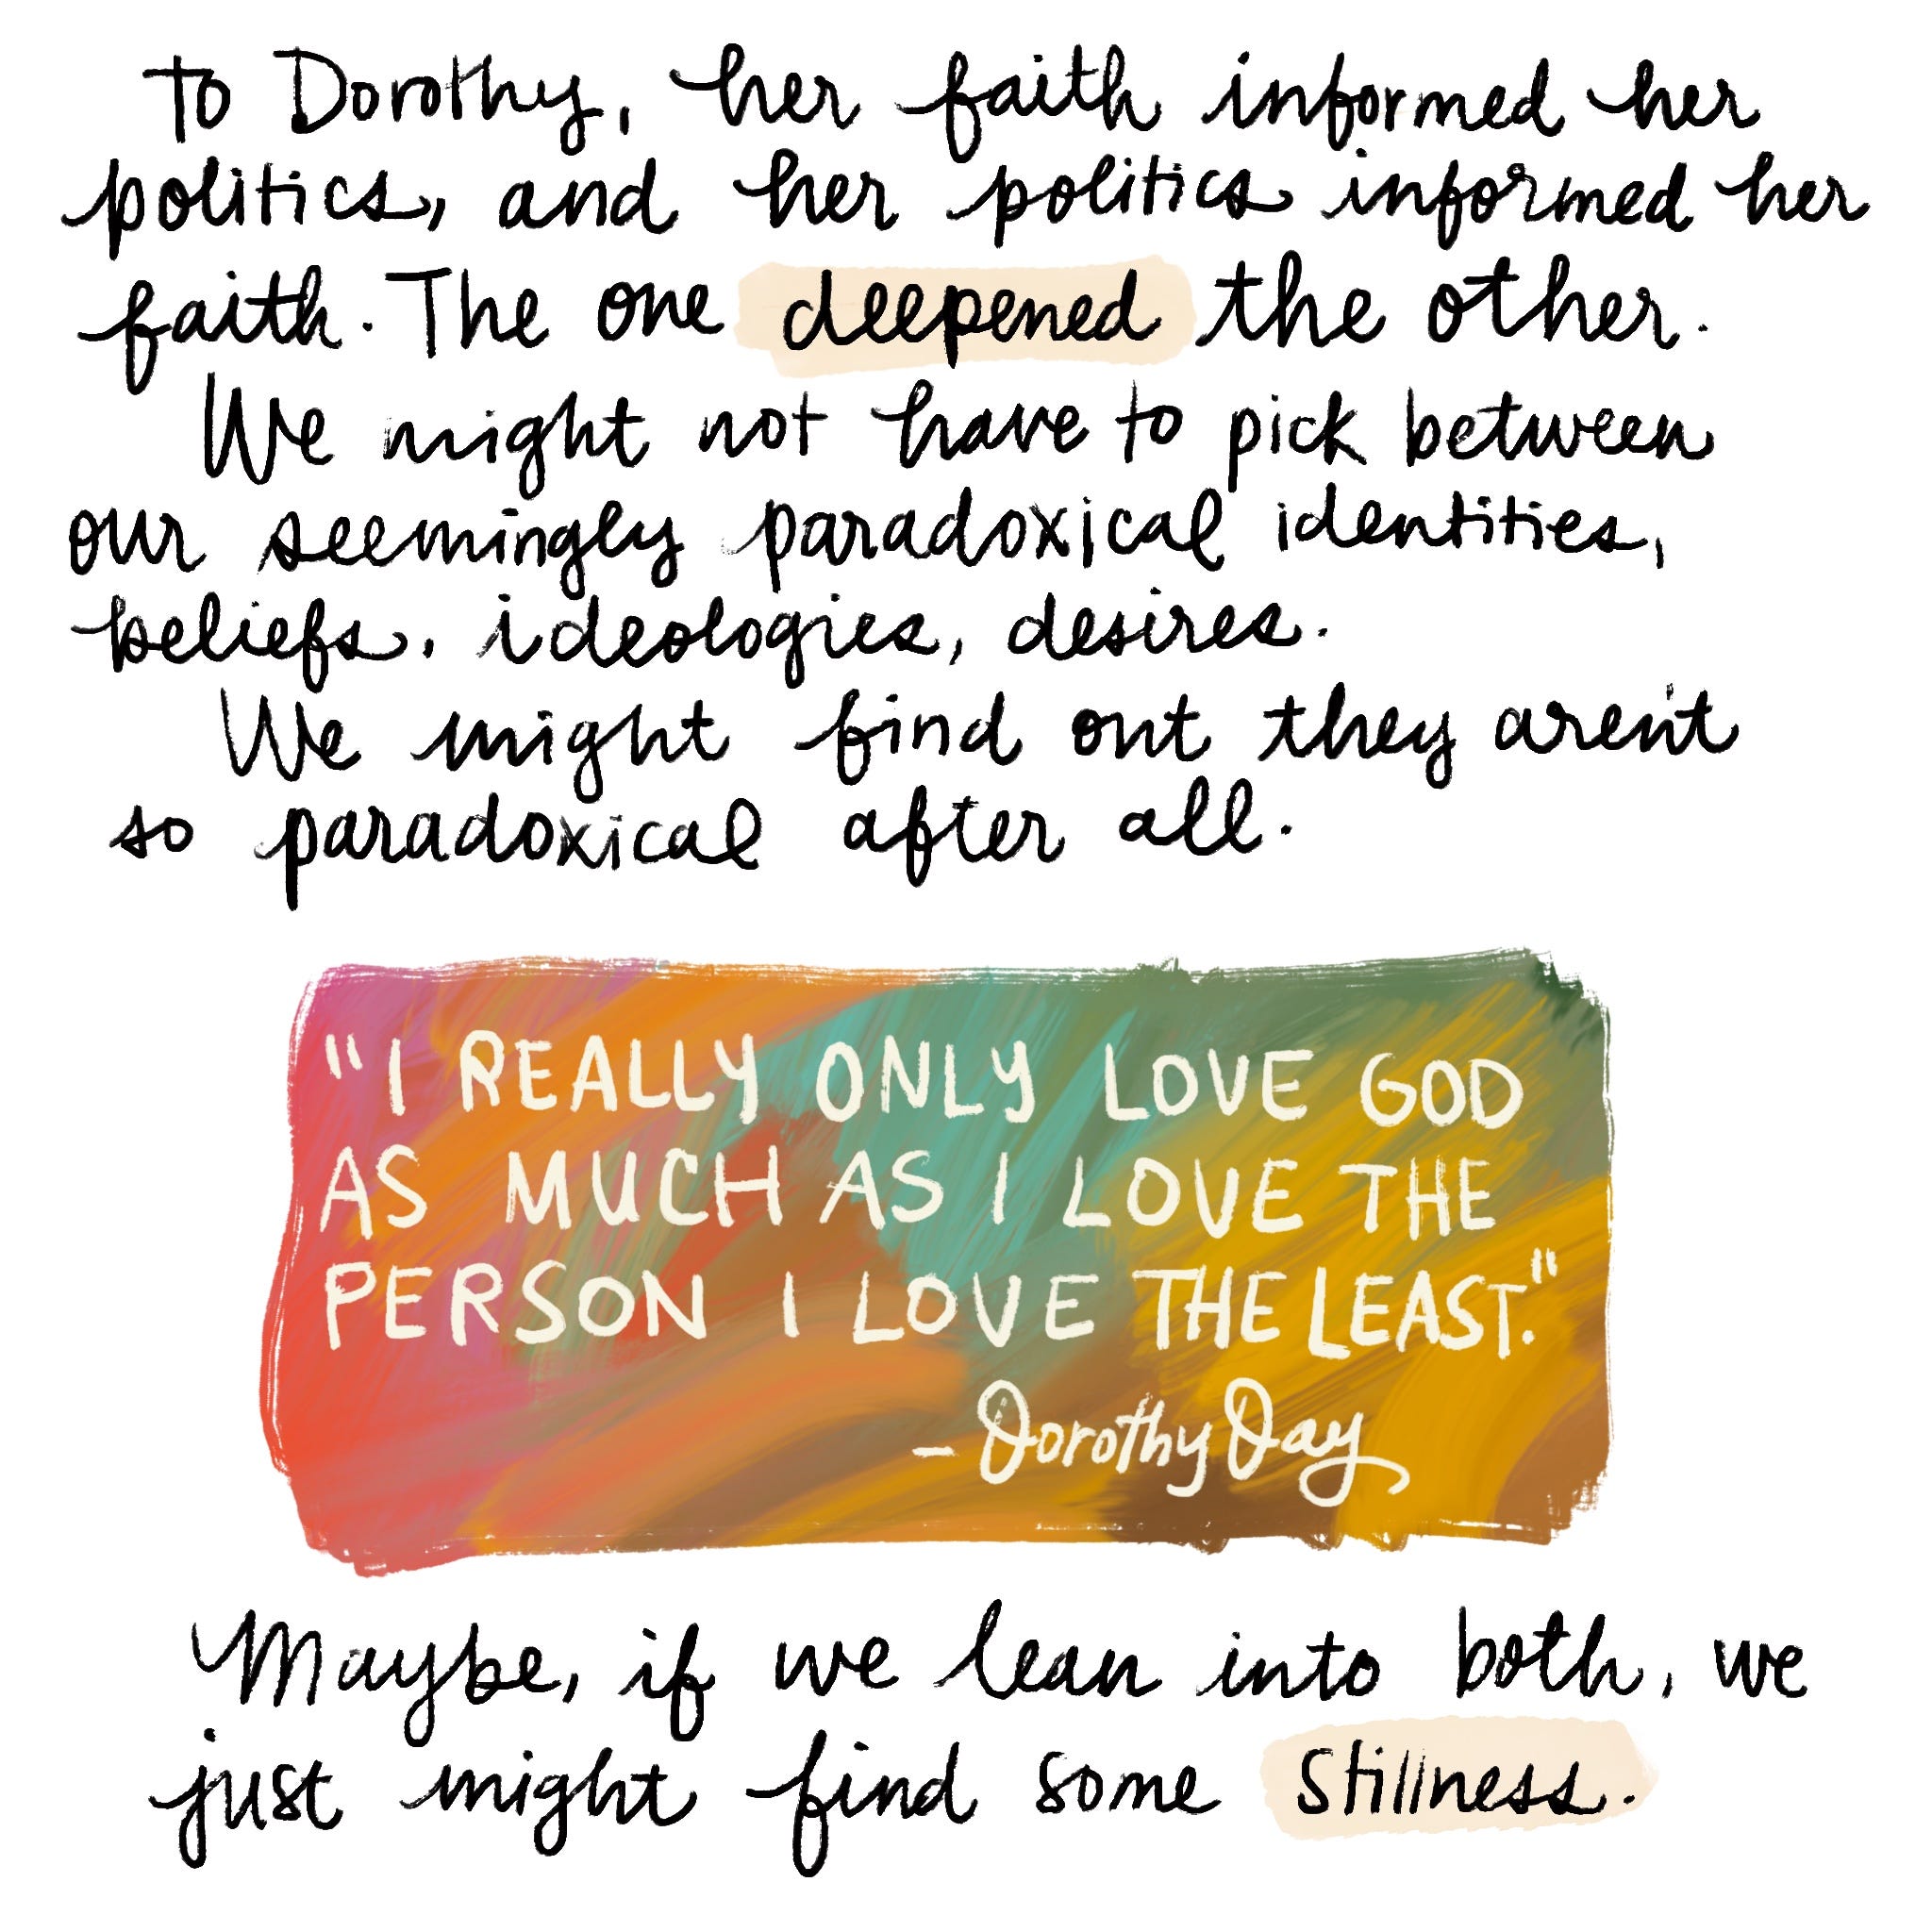 To Dorothy, her faith informed her
politics, and her politics informed her
faith. The one deepened the other.
We might not have to pick between
our seemingly paradoxical identities,
beliefs, ideologies, desires.
We might find out they aren't
so paradoxical after all.
"I REALLY ONLY LOVE GOD
AS MUCH AS I LOVE THE
PERSON I LOVE THE LEAST."
- Dorothy Day
Maybe, if we lean into both, we
just might find some stillness.